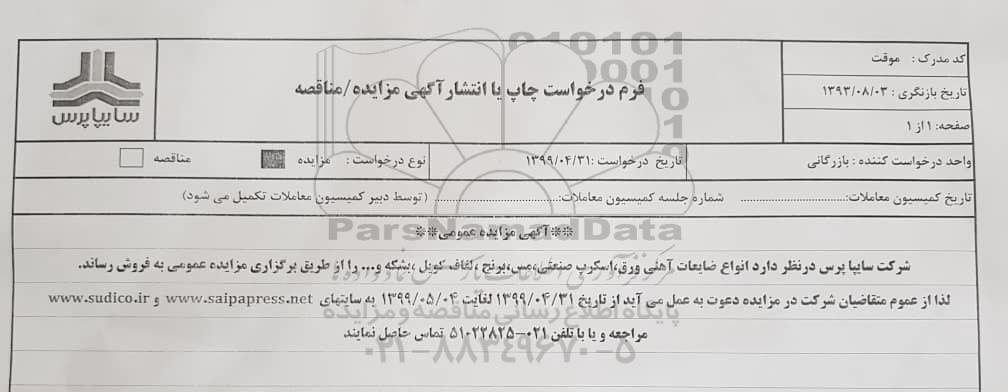 کد مدرک : موقت
تاریخ بازنگری : ۱۳۹۳/۰۸/۰۳
صفحه: ۱ از ۱
فرم درخواست چاپ یا انتشار آگهی مزایده/مناقصه
سایپا پرس
واحد درخواست کننده : بازرگانی
تاریخ درخواست :۱۳۹۹/۰۴/۳۱
نوع درخواست : مزایده مناقصه
تاریخ کمیسیون معاملات:............................ شماره جلسه کمیسیون معاملات:............................ (توسط دبیر کمیسیون معاملات تکمیل می شود)
**آگهی مزایده عمومی**
شرکت سایپا پرس درنظر دارد انواع ضایعات آهنی ورق،اسکرپ صنعتی،مس،برنج ،لفاف کویل ،بشکه و... را از طریق برگزاری مزایده عمومی به فروش رساند.
لذا از عموم متقاضیان شرکت در مزایده دعوت به عمل می آید از تاریخ ۱۳۹۹/۰۴/۳۱ لغایت ۱۳۹۹/۰۵/۰۴ به سایتهای www.saipapress.net و www.sudico.ir
مراجعه و یا با تلفن ۰۲۱-۵۱۰۲۲۸۲۵ تماس حاصل نمایند
ParsNamadData
پایگاه اطلاع رسانی مناقصه و مزایده
۰۲۱-۸۸۳۴۹۶۷۰-۵